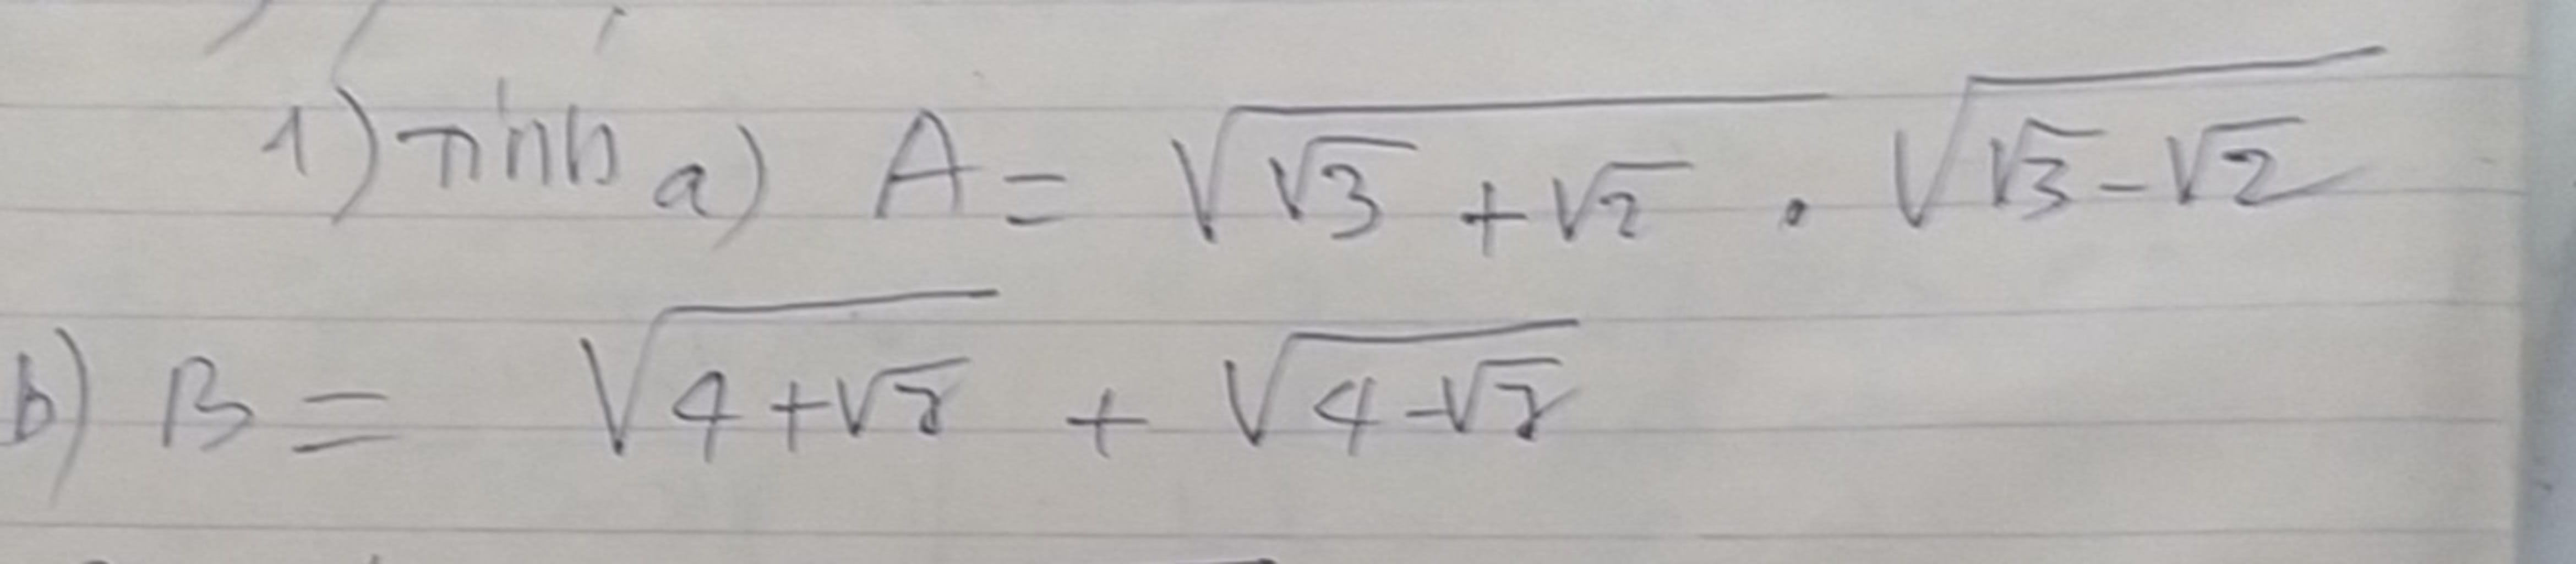 1) Tính a) A = √(√3 + √2) . √(√3 - √2)
b) B = √(4 + √7) + √(4 - √7)